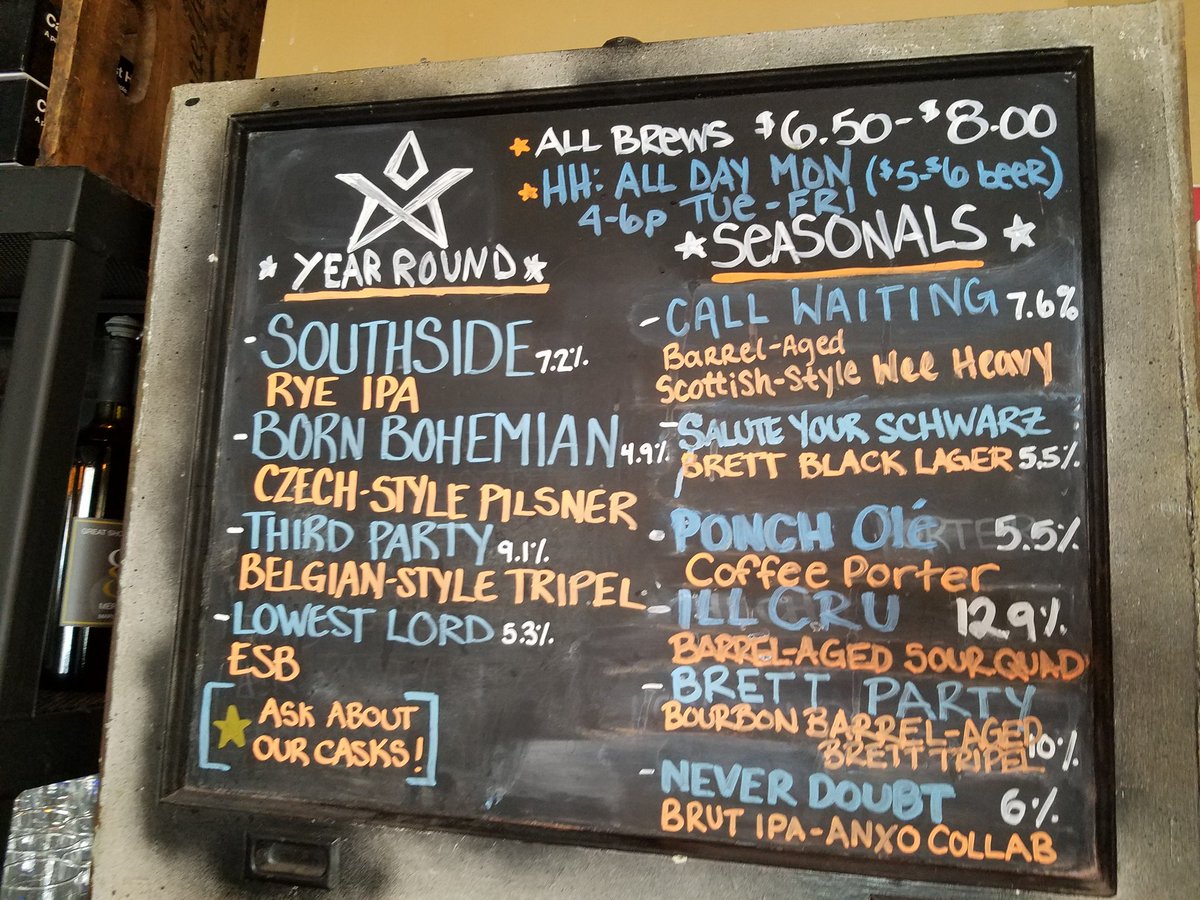 ALL BREWS $6.50-$8.00
HH: ALL DAY MON ($5-$6 beer)
4-6p TUE-FRI
YEAR ROUND
- SOUTHSIDE 7.2%
RYE IPA
- BORN BOHEMIAN 4.9%
CZECH-STYLE PILSNER
- THIRD PARTY 9.1%
BELGIAN-STYLE TRIPEL
- LOWEST LORD 5.3%
ESB
[ASK ABOUT
OUR CASKS!]
SEASONALS
- CALL WAITING 7.6%
Barrel-Aged
Scottish-Style Wee Heavy
- SALUTE YOUR SCHWARZ
BRETT BLACK LAGER 5.5%
- PONCH Olé 5.5%
Coffee Porter
- ILL CRU 12.9%
BARREL-AGED SOUR QUAD
- BRETT PARTY
BOURBON BARREL-AGED
BRETT TRIPEL 10%
- NEVER DOUBT 6%
BRUT IPA-ANXO COLLAB